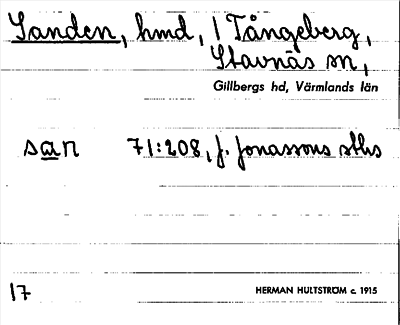 Sanden, hmd, 1 Tångeberg,
Stavnäs sn,
Gillbergs hd, Värmlands län
san 71:208, J. Jonassons sths
17 HERMAN HULTSTRÖM c. 1915